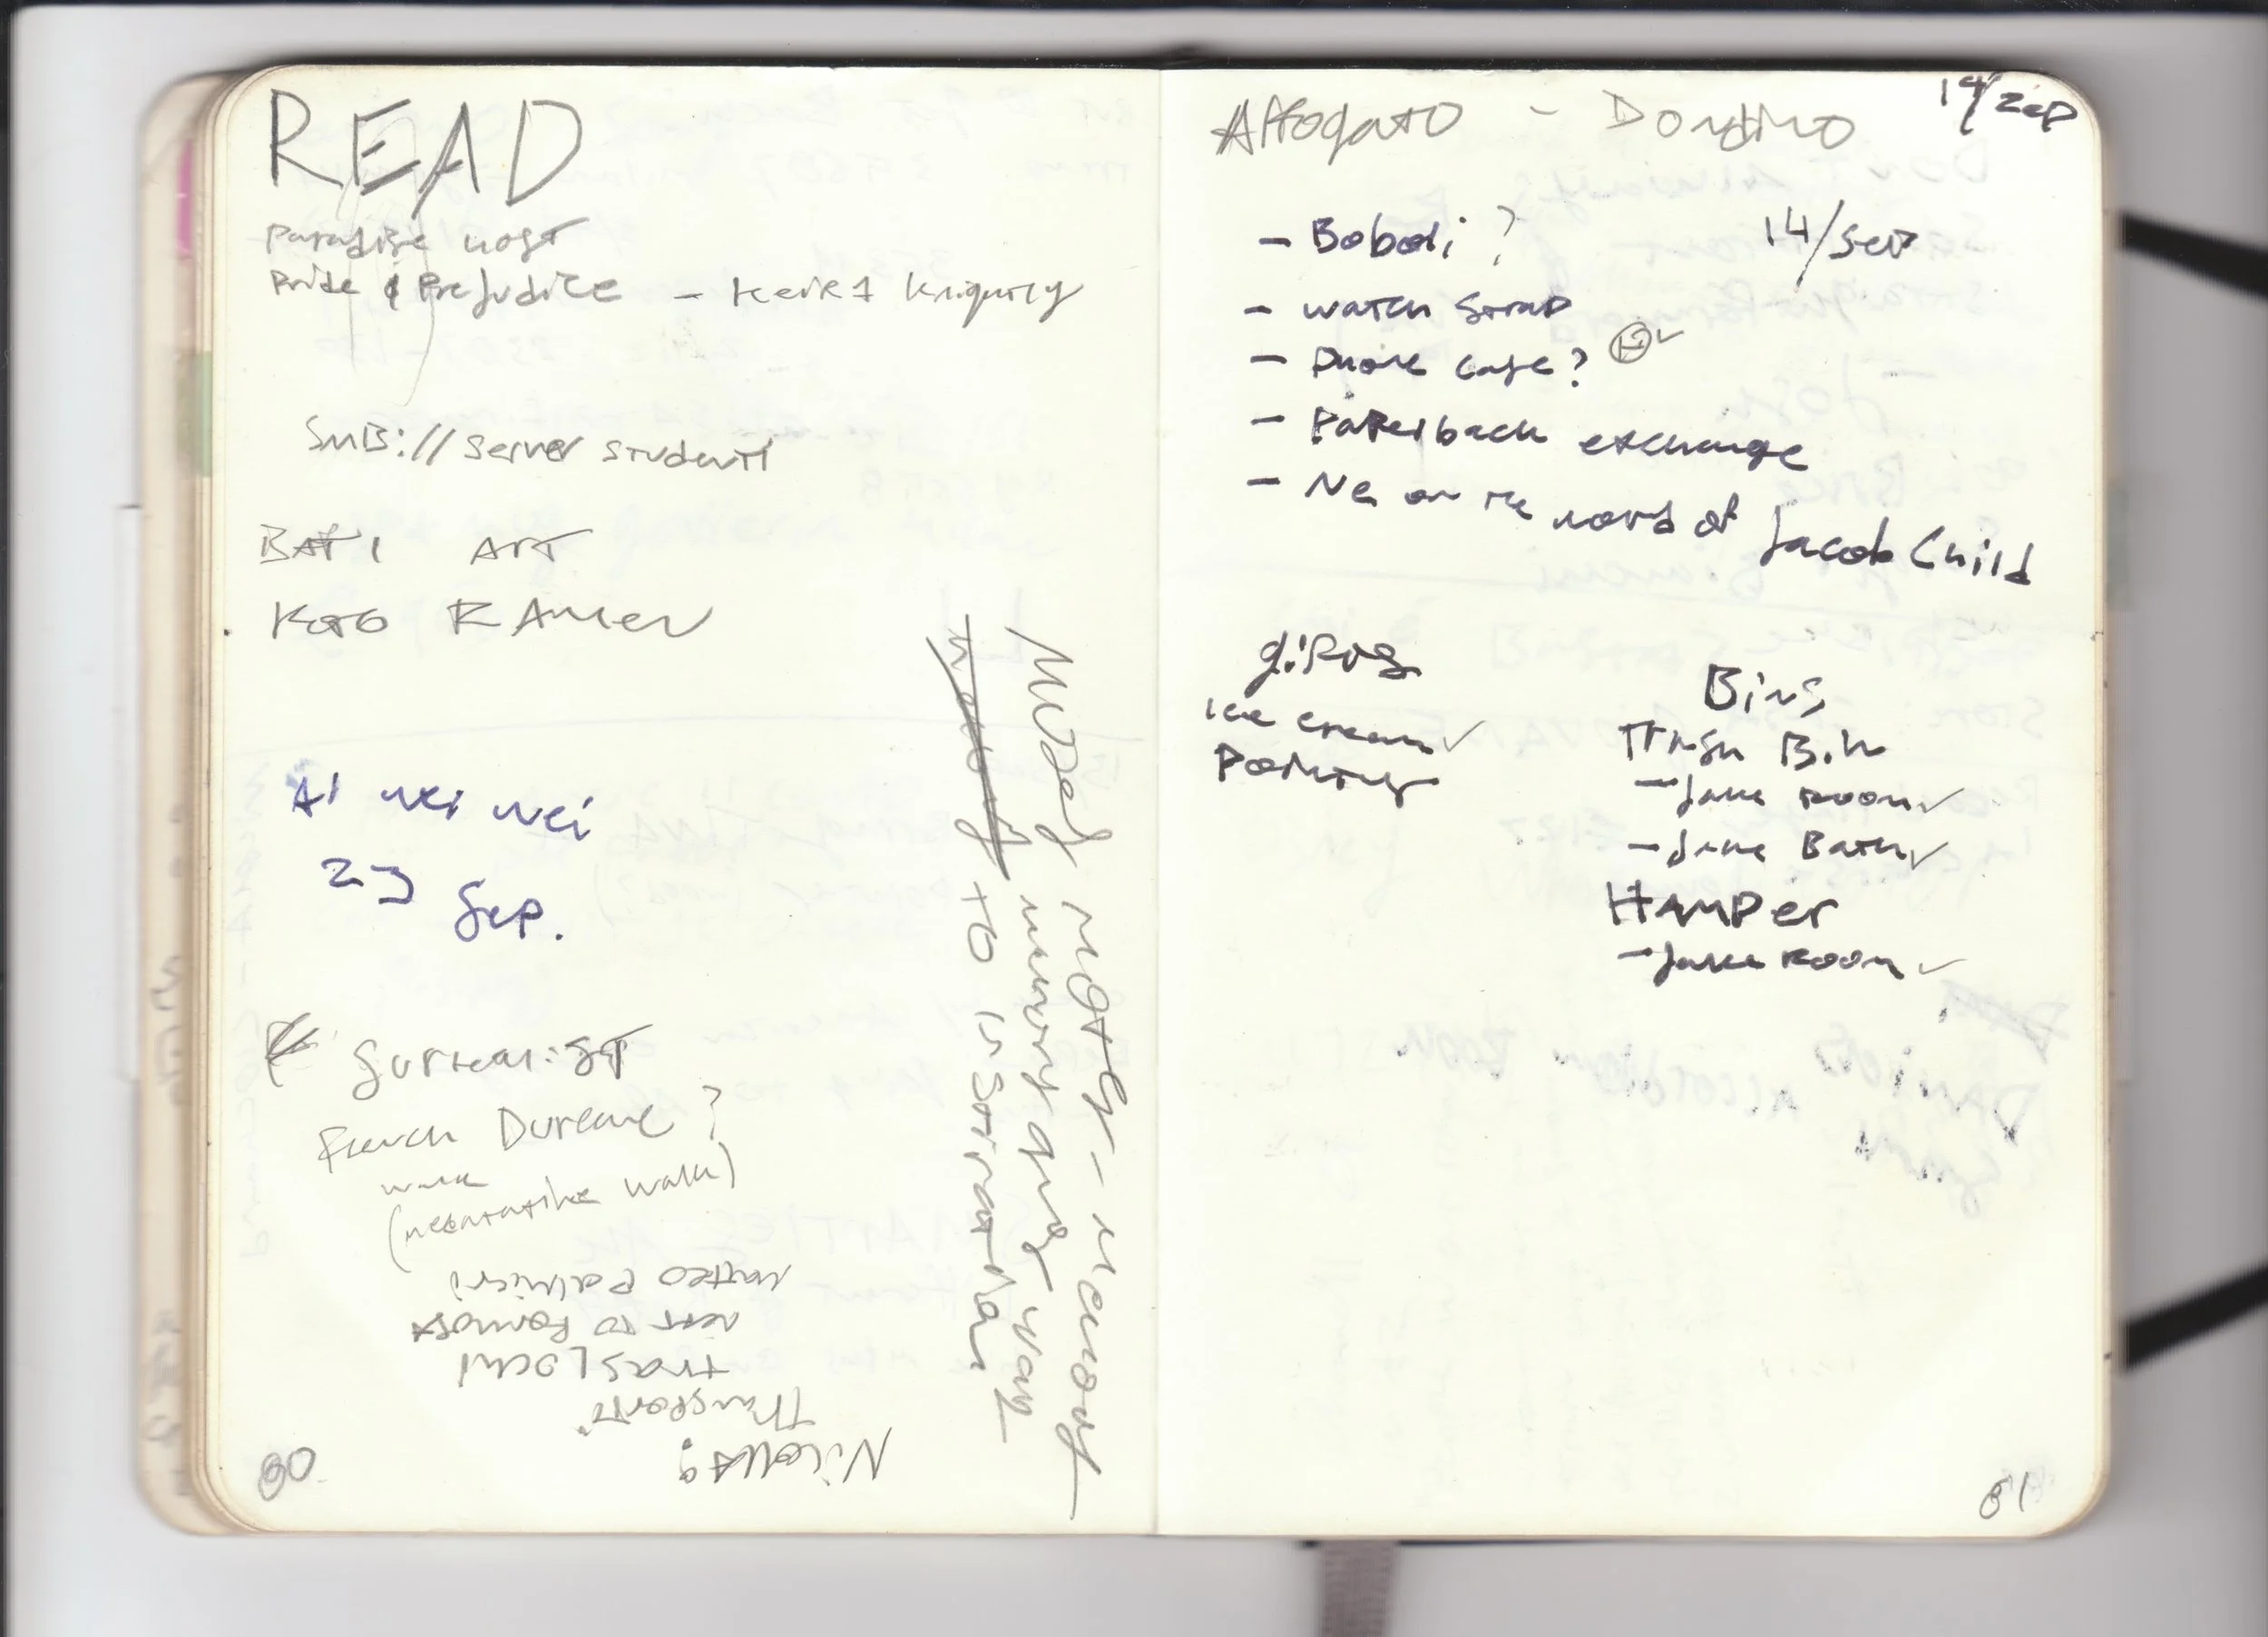 READ
Paradise Lost
Pride & Prejudice - Keira Knightly
SMB:// server studenti
BAT1 ART
Koto RAmen
Ai wei wei
23 Sep.
Surrealist
French Dureane?
walk
(meditative walk)
Matteo Palmieri
next to Formosa
trasLochi
"Transporti"
Nicolas?
80
to is strada
Mudej Motej - memory
memory
Affogato - Dondino
19/Sep
- Boboli? 14/Sep
- watch strap
- Phone case?
- Paperback exchange
- Ne on the word of Jacob Child
giros
ice cream
Painting
Bins
Trash Bin
- Jake Room
- Jake Bath
HAMPer
- Jake Room
81